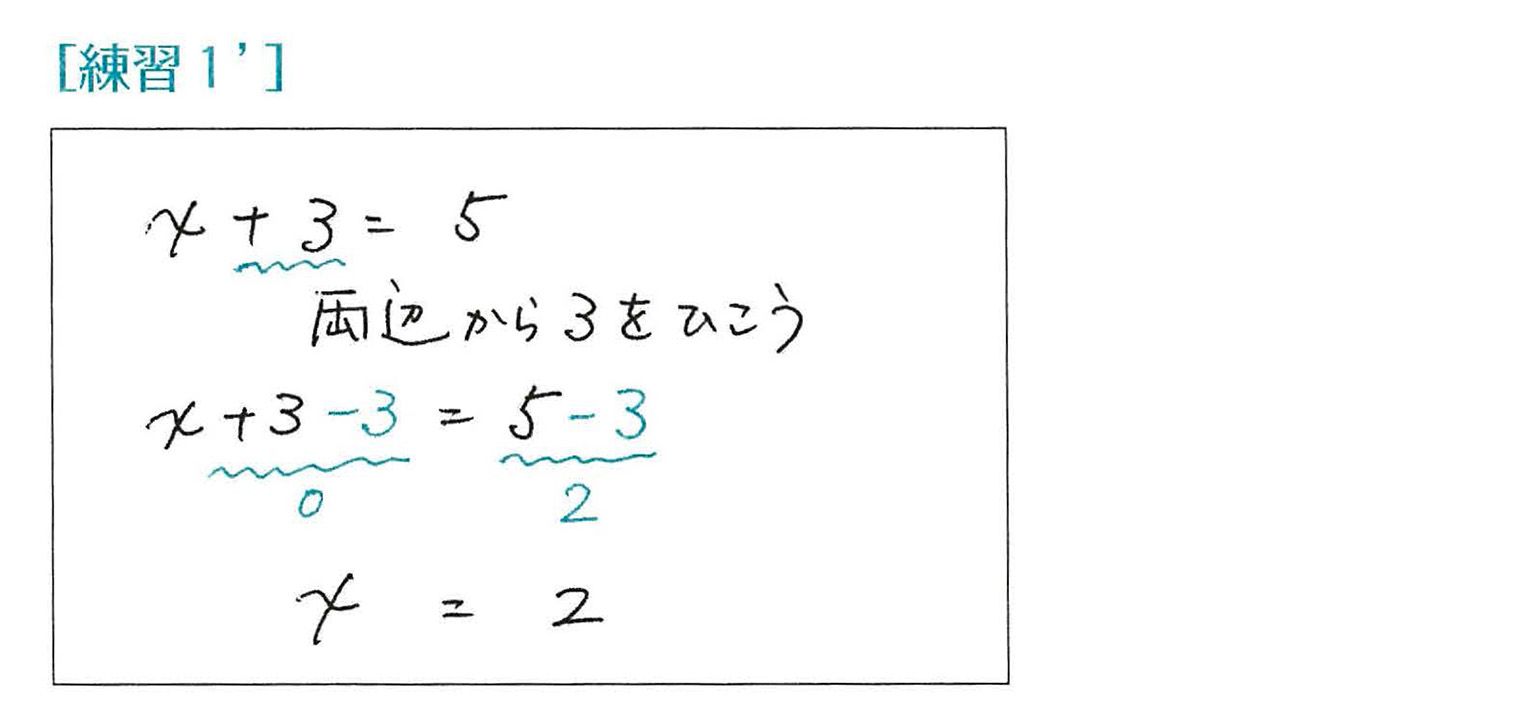 [練習1’]
x + 3 = 5
両辺から3をひこう
x + 3 - 3 = 5 - 3
0 2
x = 2